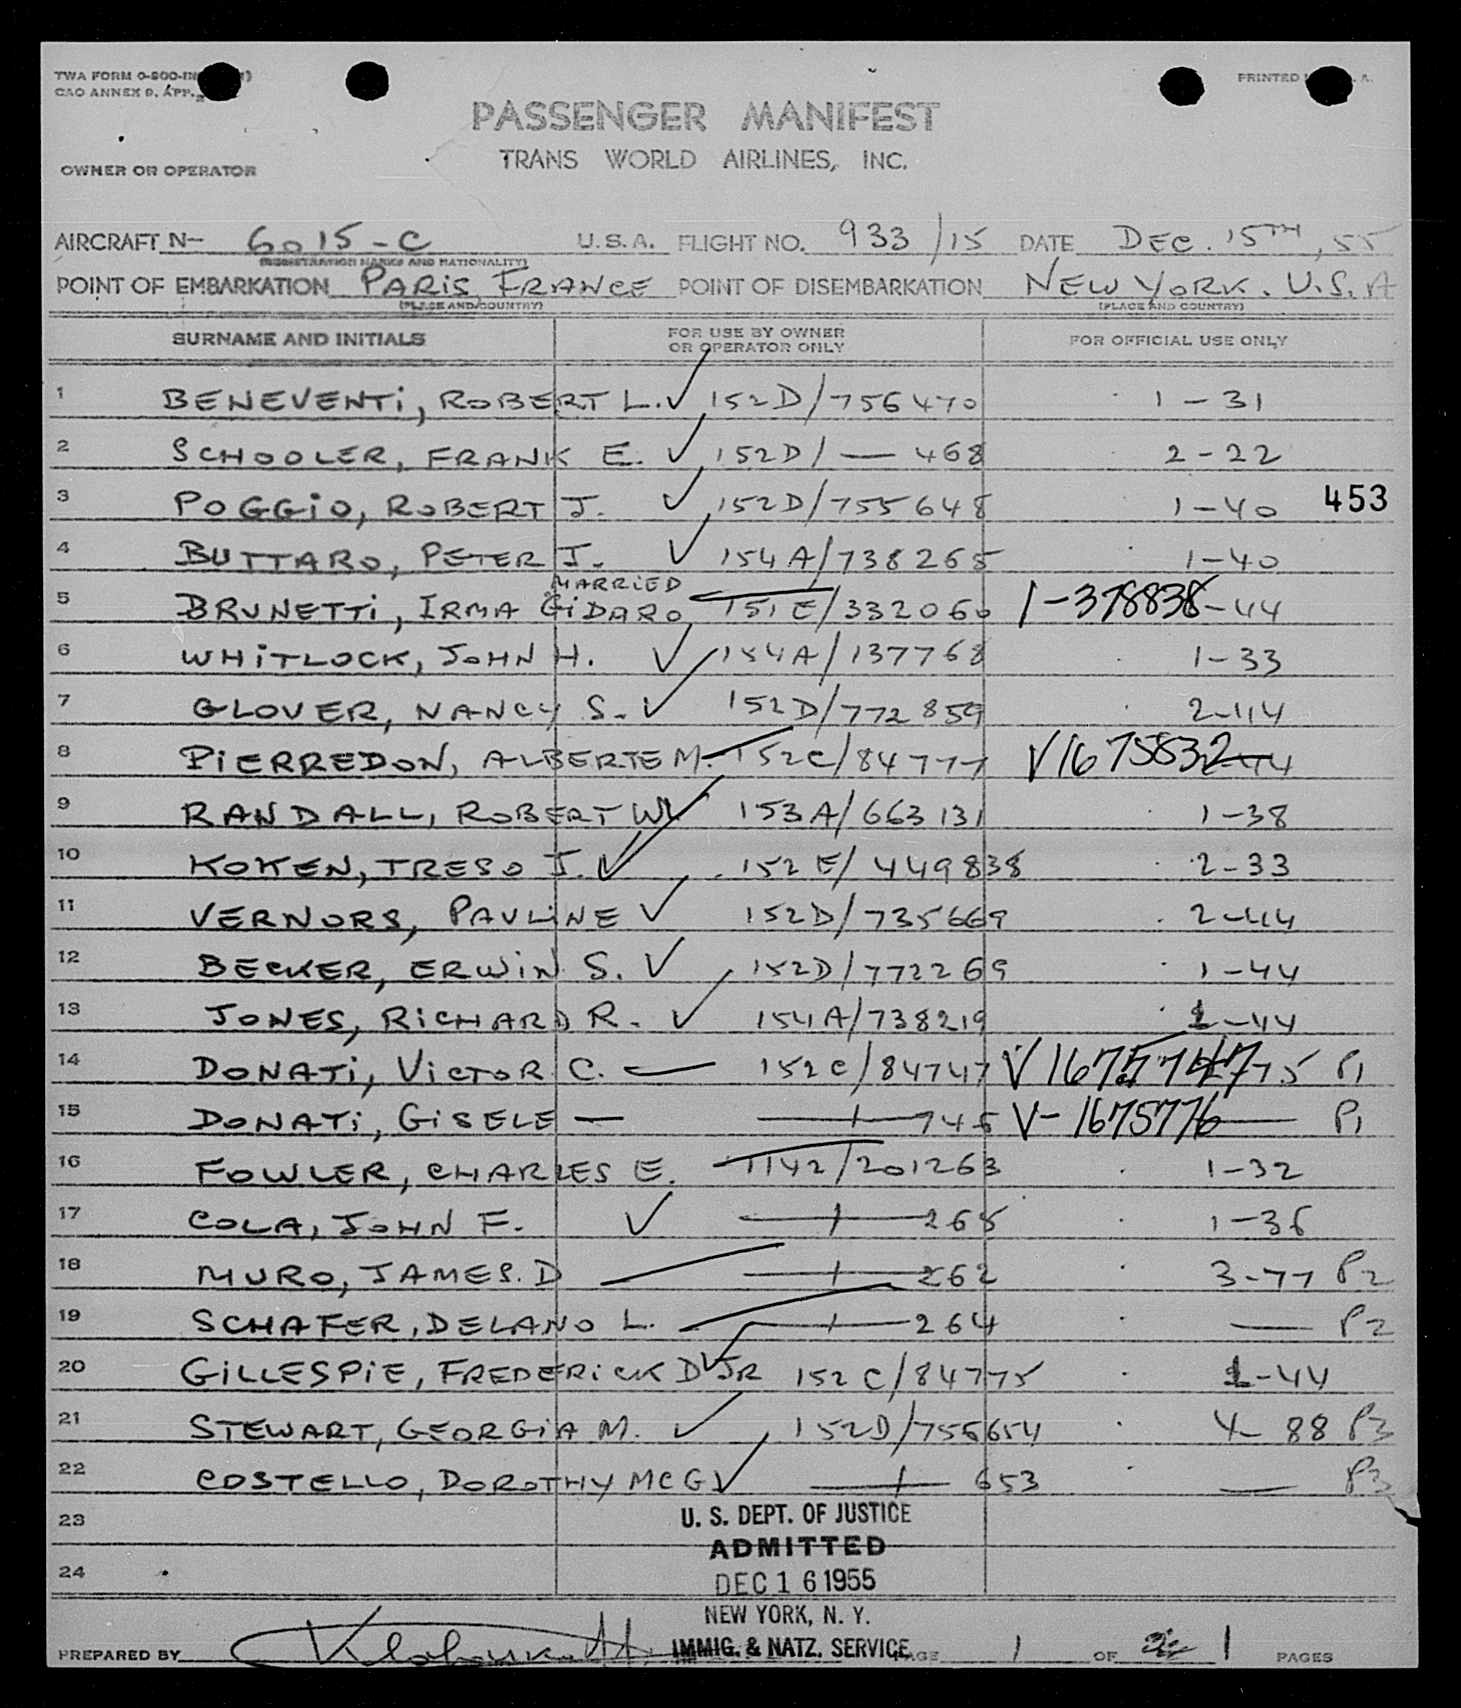 TWA FORM 0-800-IN
CAO ANNEX 9, APP.
PRINTED
PASSENGER MANIFEST
TRANS WORLD AIRLINES, INC.
OWNER OR OPERATOR
AIRCRAFT N- 6015-C U.S.A. FLIGHT NO. 933/15 DATE DEC. 15TH, 55
(REGISTRATION MARKS AND NATIONALITY)
POINT OF EMBARKATION PARIS, FRANCE POINT OF DISEMBARKATION NEW YORK. U.S.A
(PLACE AND COUNTRY) (PLACE AND COUNTRY)
SURNAME AND INITIALS FOR USE BY OWNER OR OPERATOR ONLY FOR OFFICIAL USE ONLY
1 BENEVENTI, ROBERT L. ✓ 152D/756470 1-31
2 SCHOOLER, FRANK E. ✓ 152D/ — 468 2-22
3 POGGIO, ROBERT J. ✓ 152D/755648 1-40 453
4 BUTTARO, PETER J. ✓ 154A/738265 1-40
MARRIED
5 BRUNETTI, IRMA GIDARO 151E/332060 1-378838 -44
6 WHITLOCK, JOHN H. ✓ 154A/137768 1-33
7 GLOVER, NANCY S. ✓ 152D/772859 2-44
8 PIERREDON, ALBERTE M. 152C/84777 V1675832 -44
9 RANDALL, ROBERT W ✓ 153A/663131 1-38
10 KOKEN, TRESO J. ✓ 152E/449838 2-33
11 VERNORS, PAULINE ✓ 152D/735669 2-44
12 BECKER, ERWIN S. ✓ 152D/772269 1-44
13 JONES, RICHARD R. ✓ 154A/738219 1-44
14 DONATI, VICTOR C. — 152C/84747 V1675747 75 P1
15 DONATI, GISELE — —/—745 V-1675776 — P1
16 FOWLER, CHARLES E. 1142/201263 1-32
17 COLA, JOHN F. ✓ —/—265 1-36
18 MURO, JAMES. D —/—262 3-77 P2
19 SCHAFER, DELANO L. —/—264 — P2
20 GILLESPIE, FREDERICK D ✓ JR 152C/84775 1-44
21 STEWART, GEORGIA M. ✓ 152D/755654 4-88 P3
22 COSTELLO, DOROTHY MCG ✓ —/— 653 — P3
23
U. S. DEPT. OF JUSTICE
ADMITTED
24
DEC 16 1955
NEW YORK, N. Y.
IMMIG. & NATZ. SERVICE
PREPARED BY PAGE 1 OF 1 PAGES